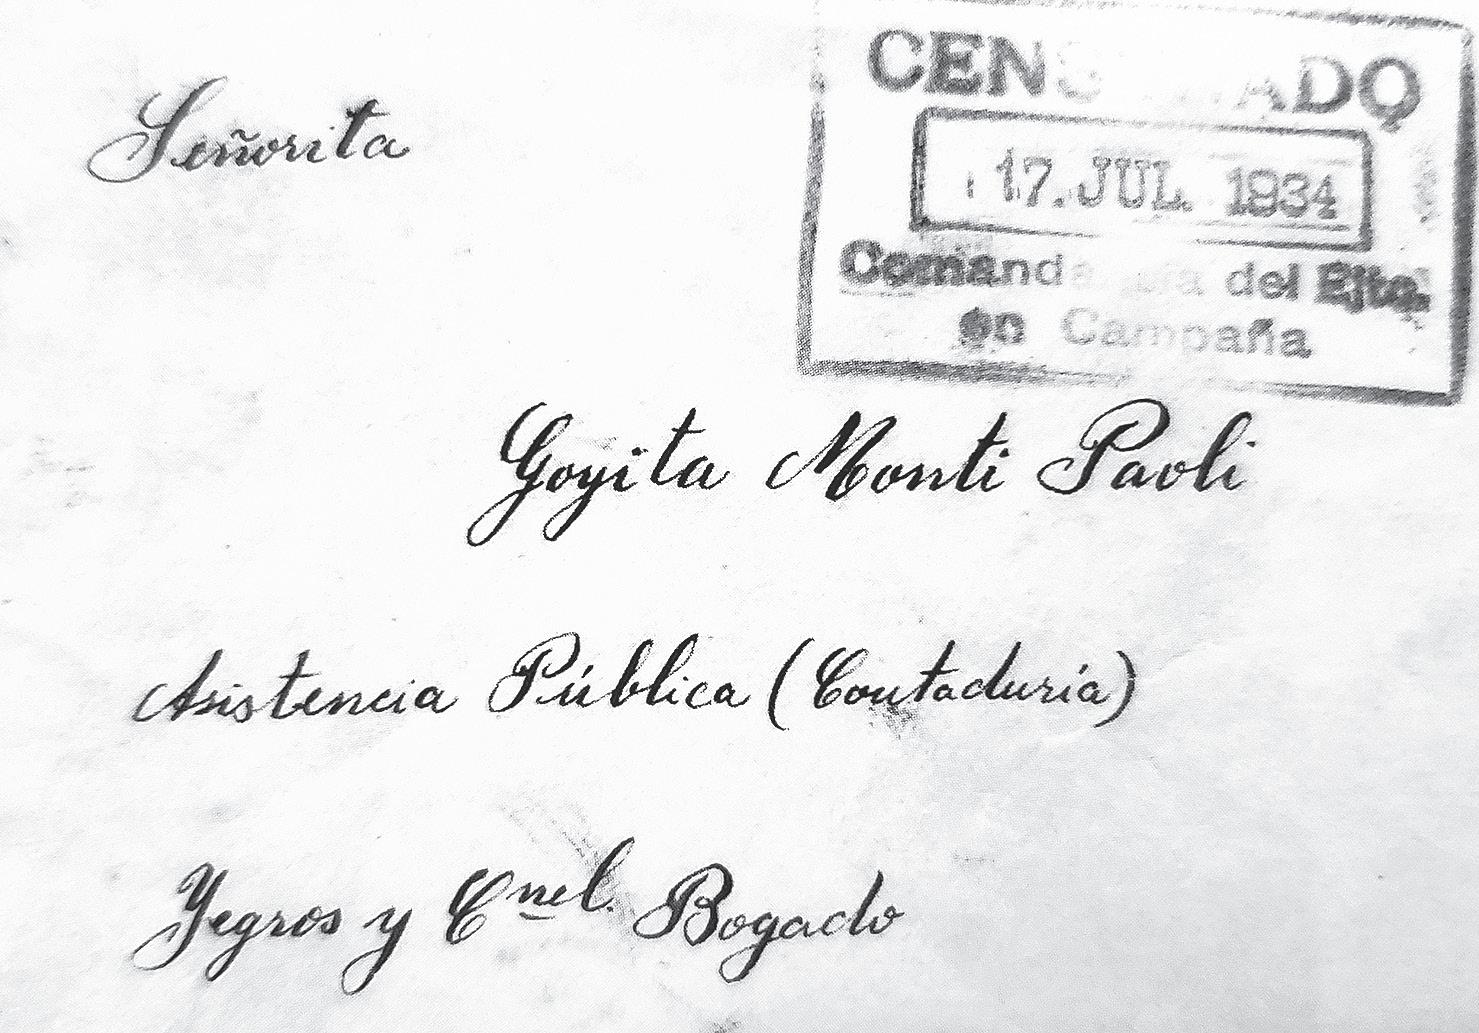 Señorita
CENSURADO
17. JUL. 1934
Comandancia del Ejto.
en Campaña
Goyita Monti Paoli
Asistencia Pública (Contaduría)
Yegros y Cnel. Bogado